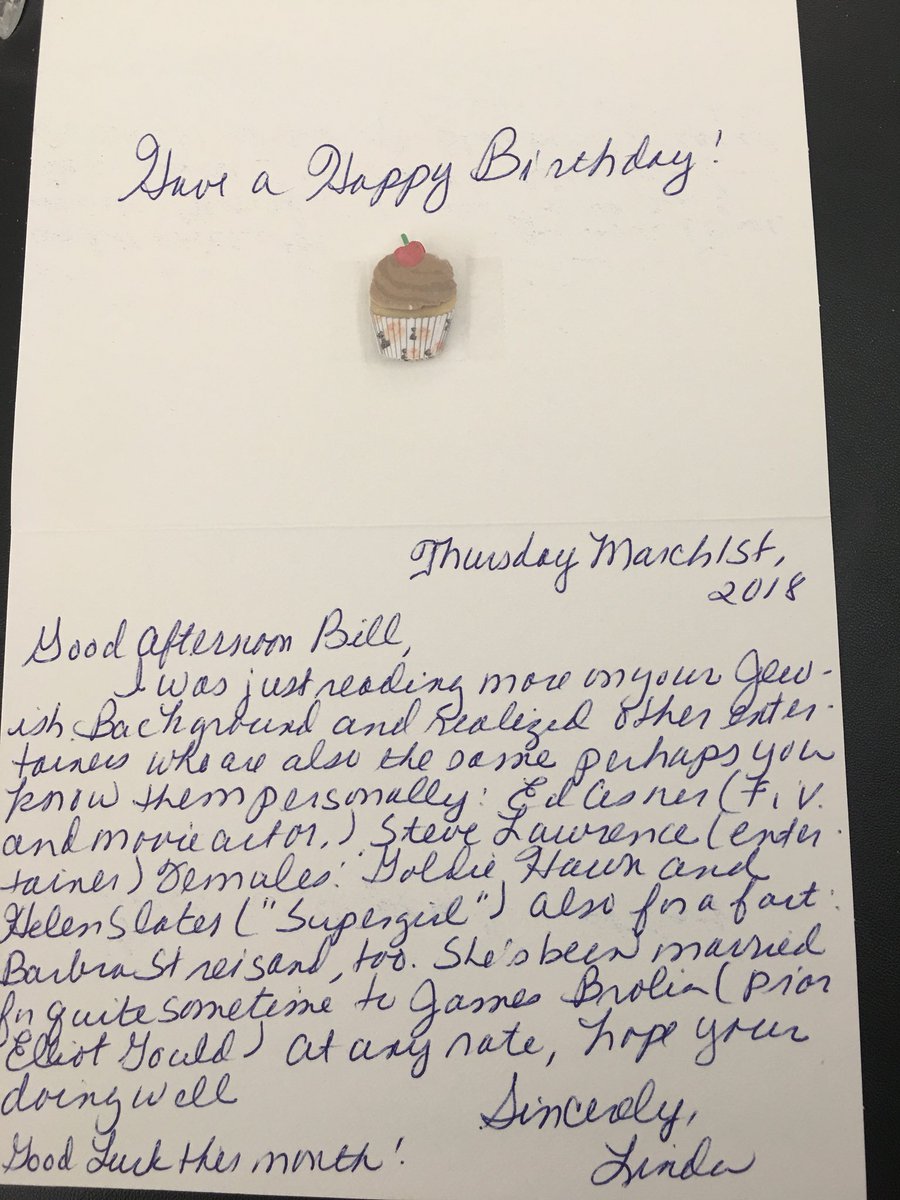 Have a Happy Birthday!
Thursday March 1st,
2018
Good Afternoon Bill,
I was just reading more on your Jew-
ish Background and Realized other enter-
tainers who are also the same perhaps you
know them personally: Ed Asner (T.V.
and movie actor.) Steve Lawrence (enter-
tainer) Females: Goldie Hawn and
Helen Slater ("Supergirl") also for a fact:
Barbra Streisand, too. She's been married
for quite sometime to James Brolin (prior
Elliot Gould) at any rate, hope your
doing well
Sincerely,
Good Luck this month!
Linda